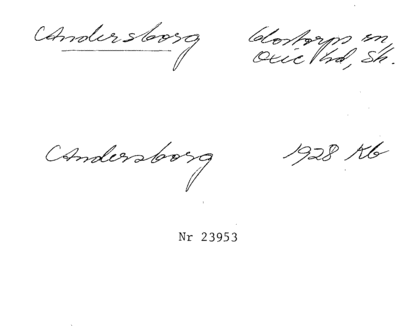 Andersborg Glostorps sn,
Oxie hd, Sk.
Andersborg 1928 Kb
Nr 23953